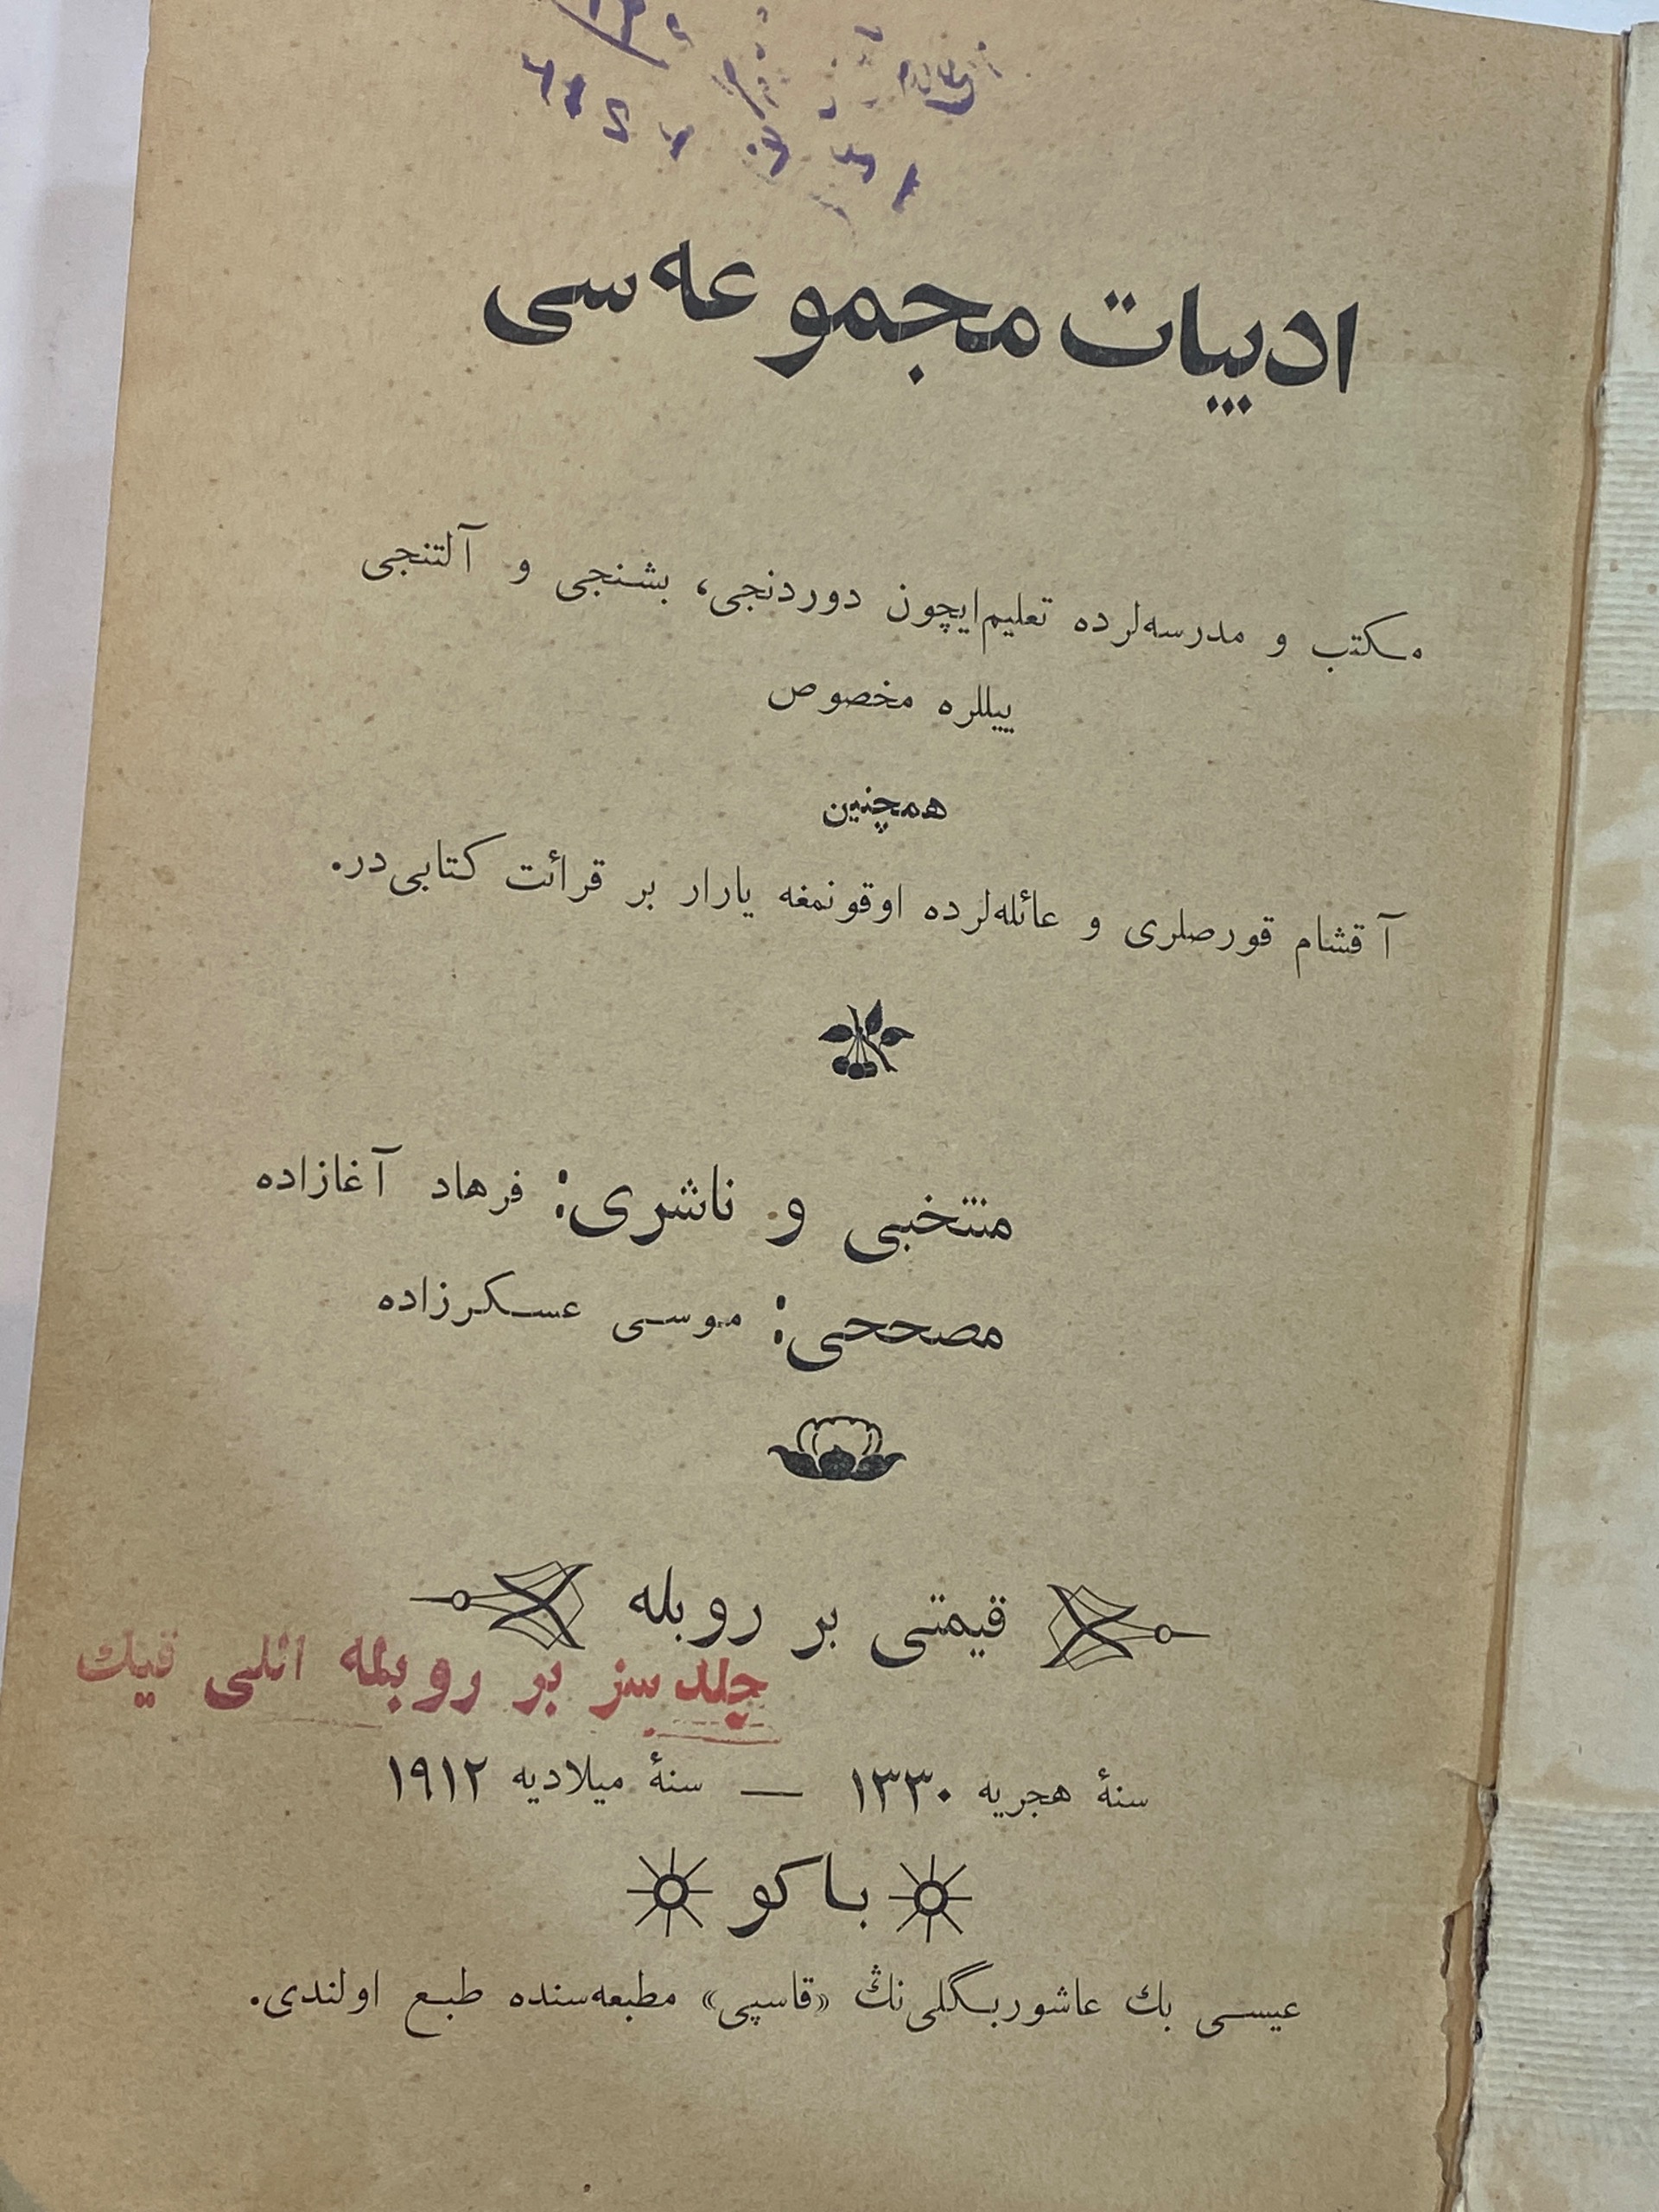 ادبیات مجموعه‌سی
مکتب و مدرسه‌لرده تعلیم ایچون دوردنجی، بشنجی و آلتنجی
ییللره مخصوص
همچنین
آقشام قورصلری و عائله‌لرده اوقونمغه یارار بر قرائت کتابی‌در.
منتخبی و ناشری: فرهاد آغازاده
مصححی: موسی عسکرزاده
قیمتی بر روبله
جلد سز بر روبله اللی قپك
سنهٔ هجریه ۱۳۳۰ — سنهٔ میلادیه ۱۹۱۲
باکو
عیسی بك عاشوربگلی‌نڭ «قاسپی» مطبعه‌سنده طبع اولندی.